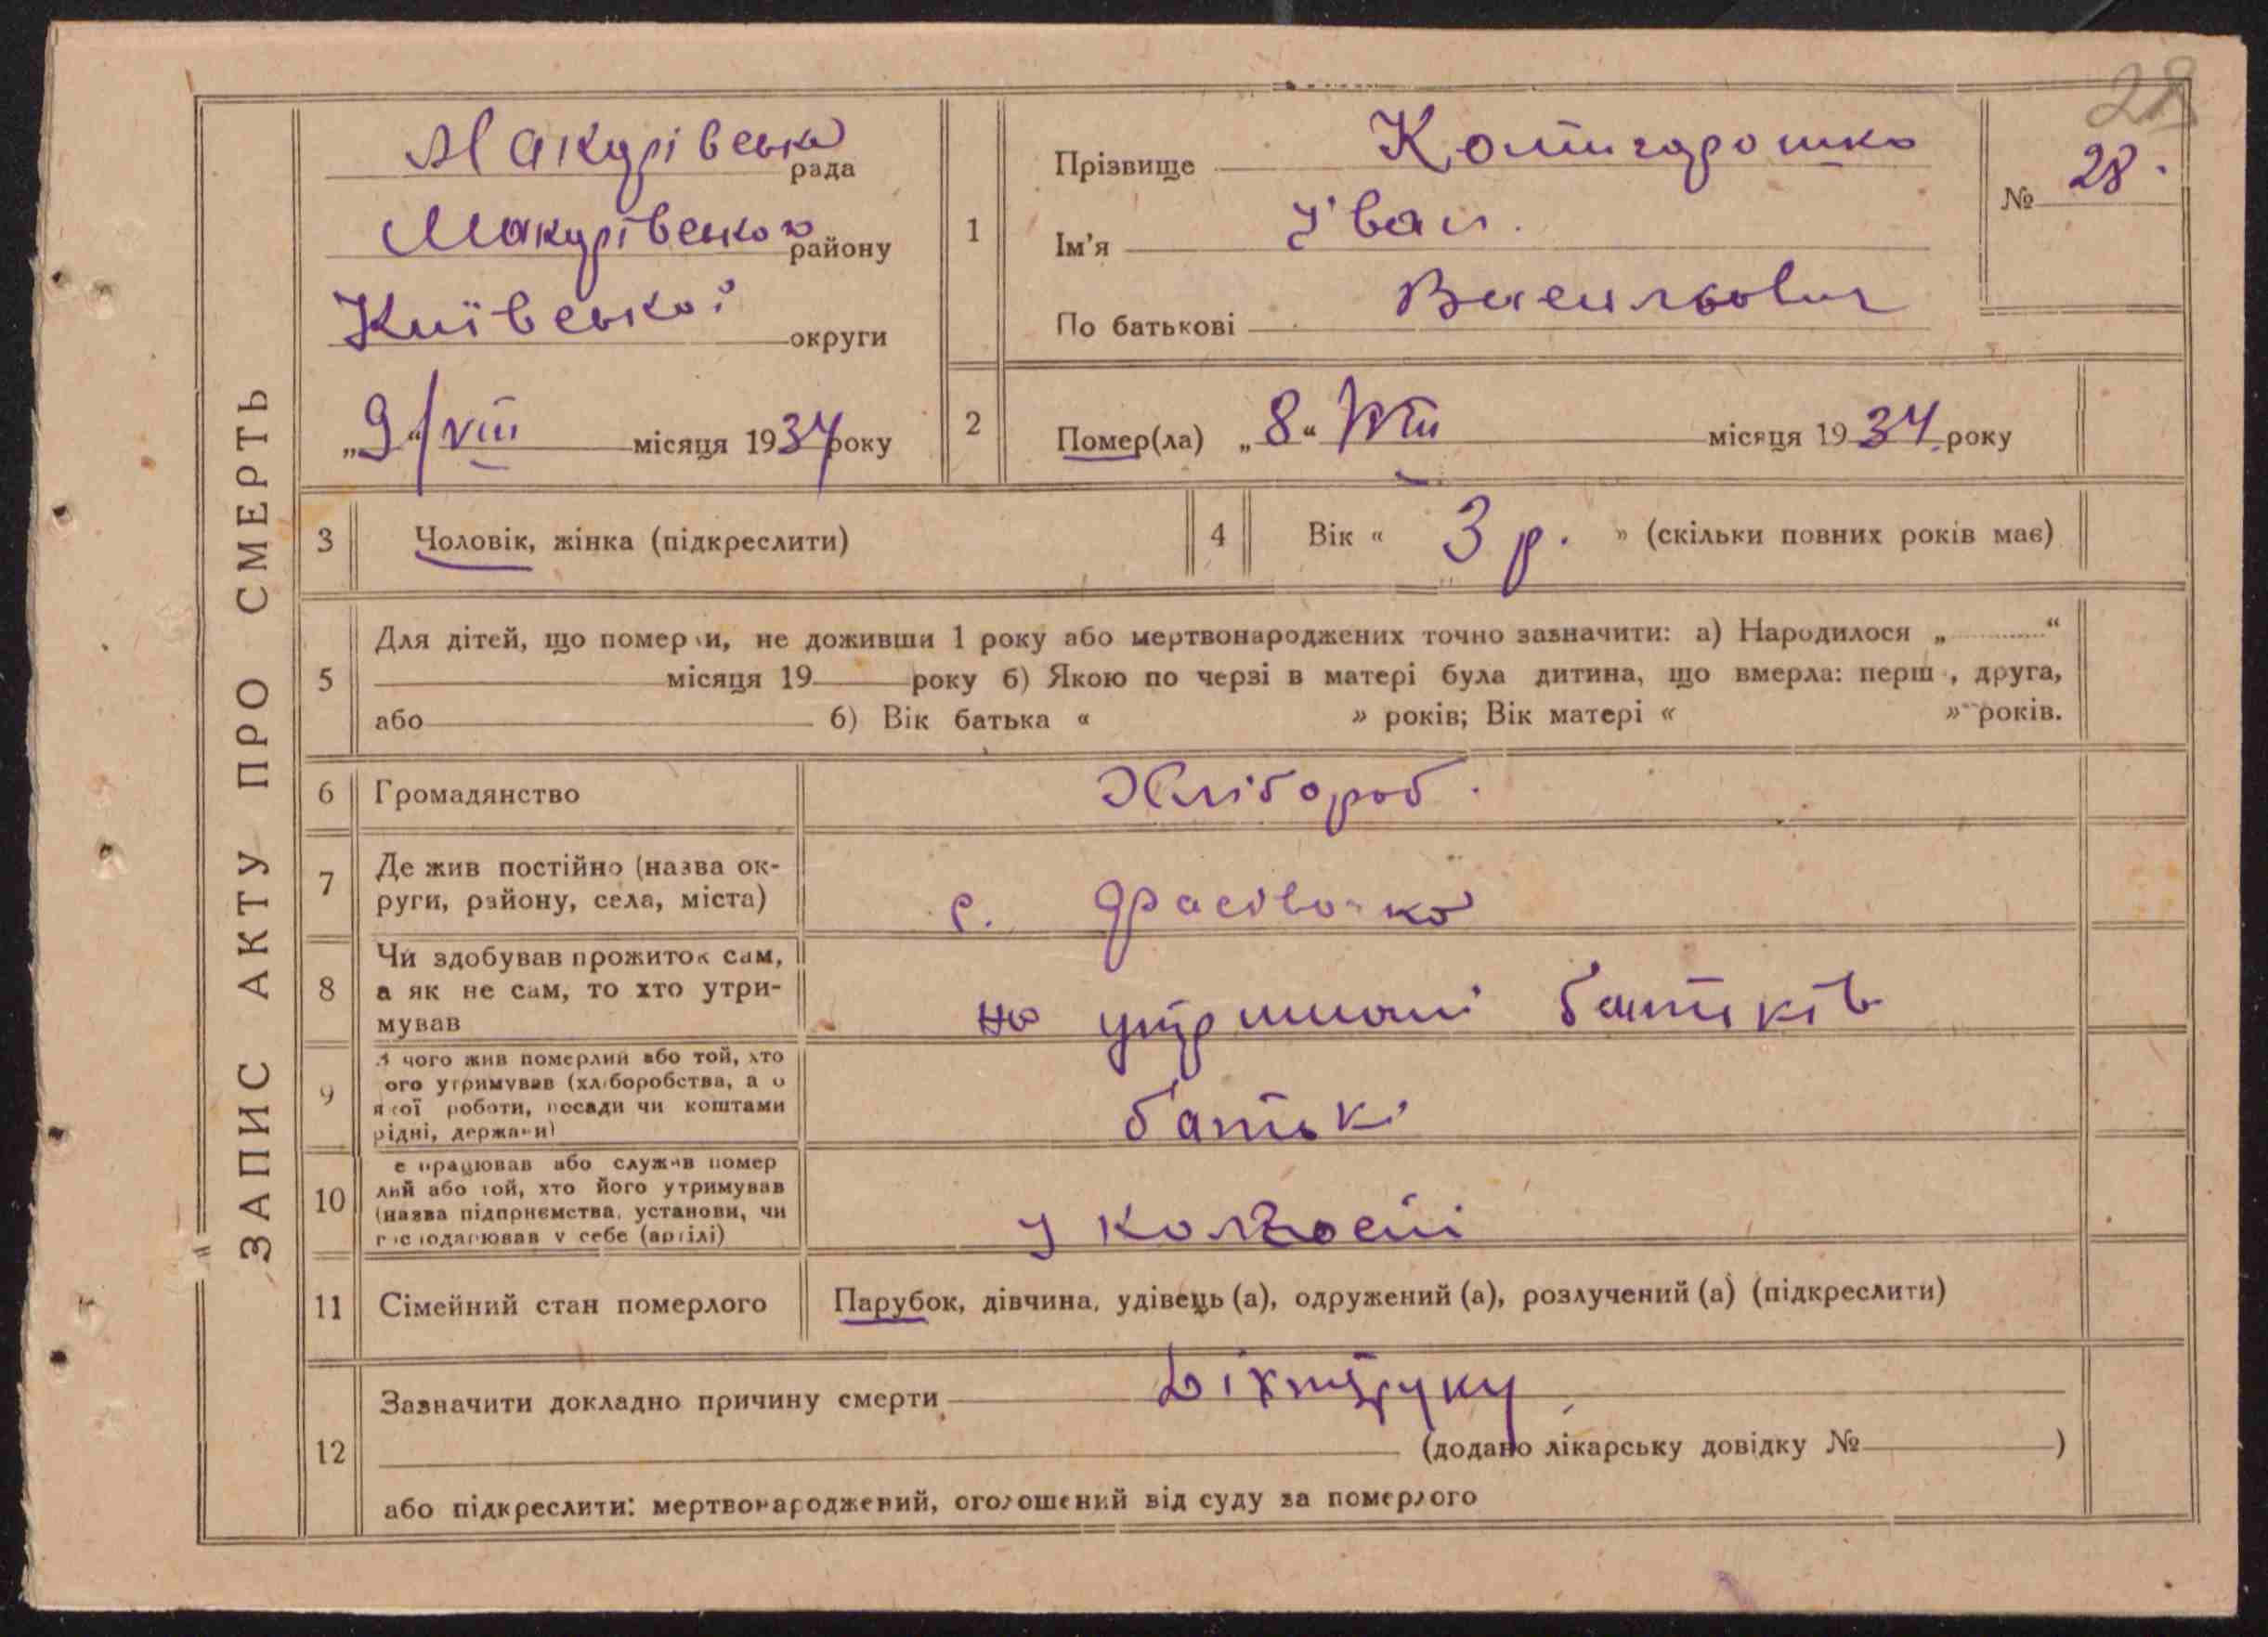 28
ЗАПИС АКТУ ПРО СМЕРТЬ
Макарівська рада
Макарівського району
Київської округи
„9“/VIII місяця 1934 року
1
Прізвище Котигорошко
Ім'я Іван.
По батькові Васильович
№ 28.
2
Помер(ла) „8“ VIII місяця 1934 року
3
Чоловік, жінка (підкреслити)
4
Вік « 3 р. » (скільки повних років має)
5
Для дітей, що померли, не доживши 1 року або мертвонароджених точно зазначити: а) Народилося „ “
місяця 19 року б) Якою по черзі в матері була дитина, що вмерла: перш , друга,
або б) Вік батька « » років; Вік матері « » років.
6
Громадянство
Хлібороб.
7
Де жив постійно (назва ок-
руги, району, села, міста)
с. Фасівочка
8
Чи здобував прожиток сам,
а як не сам, то хто утри-
мував
на утриманні батьків
9
З чого жив померлий або той, хто
ого утримував (хліборобства, а о
якої роботи, посади чи коштами
рідні, держави)
батькі
10
е працював або служив помер
лий або той, хто його утримував
(назва підприємства, установи, чи
господарював у себе (артілі)
у колгоспі
11
Сімейний стан померлого
Парубок, дівчина, удівець (а), одружений (а), розлучений (а) (підкреслити)
12
Зазначити докладно причину смерти
(додано лікарську довідку № )
або підкреслити: мертвонароджений, оголошений від суду за померлого